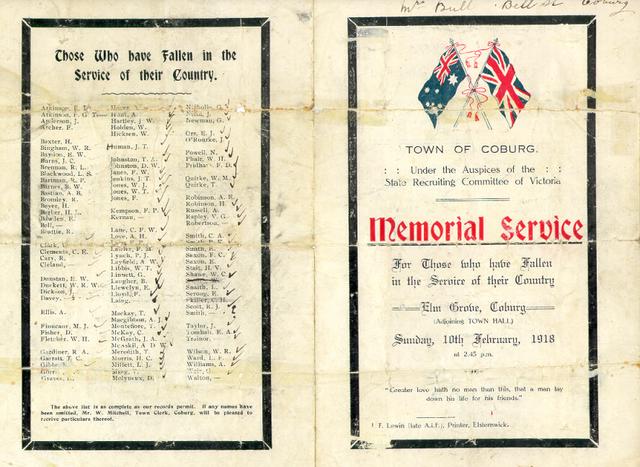 Those Who have Fallen in the
Service of their Country.
Anderson, J.
Archer, F.
Baxter, H.
Bingham, W. R.
Burns, J. C.
Brennan, R. L.
Blackwood, L. S.
Bartman, R. P.
Barnes, S. W.
Bromley, R.
Beyer, H.
Bell, —
Beattie, R.
Clements, C. E.
Cary, R.
Cleland,
Dunstan, E. W.
Duckett, W. R. W.
Dickson, J.
Davey,
Ellis, A.
Fisher, D.
Fletcher, W. H.
Gardiner, R. A.
Garrett, T. C.
Graves, L.
Hartley, J. W.
Holden, W.
Hicksen, W.
Human, J. T.
Johnston, T. A.
Johnston, D. W.
Jones, F. W.
Jenkins, J. T.
Jones, W. J.
Jones, W. T.
Jones, F.
Kempson, F. P.
Kernan,
Lane, C. F. W.
Love, A. H.
Lynch, P. J.
Layfield, A. W.
Libbis, W. T.
Linnett, G.
Laugher, B.
Llewelyn, E.
Lloyd, F.
Laing,
Mackay, T.
Macgibbon, A. J.
Montefiore, T.
McKay, C.
McGrath, J. A.
McAskil, A. D. W.
Meredith, T.
Morris, H. C.
Millett, L. J.
Molyneux, D.
Nicholls, G.
Newman, G.
Orr, E. J.
O'Rourke, J.
Powell, N.
Phair, W. H.
Quirke, W. M.
Quirke, T.
Robinson, A. E.
Robinson, H.
Russell, A.
Rapley, V. G.
Robertson,
Smith, C. A.
Smith, E.
Saxon, F. C.
Saxon, E.
Stait, H. V.
Shane, W. C.
Smith, L.
Scott, R. J.
Smith,
Taylor, J. E.
Trainor,
Wilson, W. R.
Ward, L. F.
Williams, A.
Walton,
The above list is as complete as our records permit. If any names have
been omitted, Mr. W. Mitchell, Town Clerk, Coburg, will be pleased to
receive particulars thereof.
Mrs Bull. Bell St Coburg
TOWN OF COBURG.
: : Under the Auspices of the : :
State Recruiting Committee of Victoria
Memorial Service
For Those who have Fallen
in the Service of their Country
Elm Grove, Coburg
(Adjoining TOWN HALL)
Sunday, 10th February, 1918
at 2.45 p.m.
"Greater love hath no man than this, that a man lay
down his life for his friends."
F. Lewin (late A.I.F.), Printer, Elsternwick.